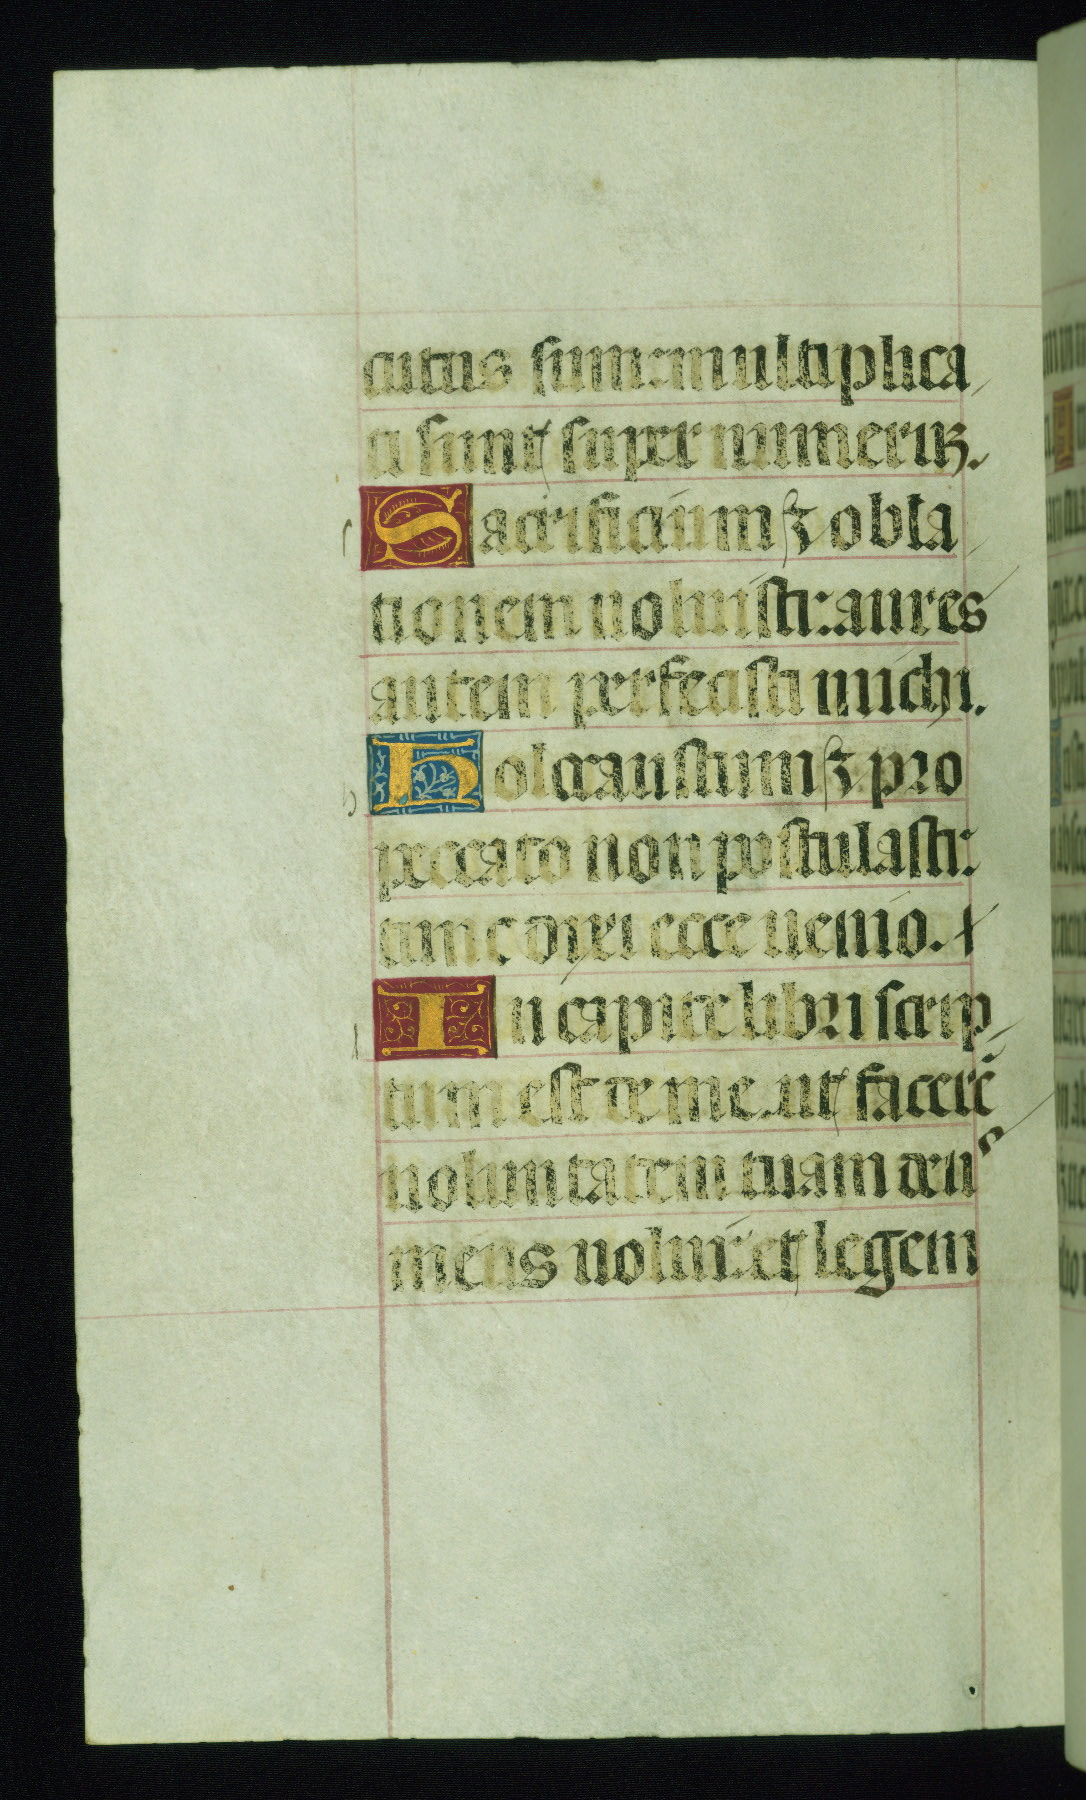 cutus sum: multiplica
ti sunt super numerū.
Sacrificium ⁊ obla
tionem noluisti: aures
autem perfecisti michi.
Holocaustum ⁊ pro
peccato non postulasti:
tunc dixi ecce uenio.
In capite libri scrip
tum est de me ut facerē
uoluntatem tuam deus
meus uolui: et legem